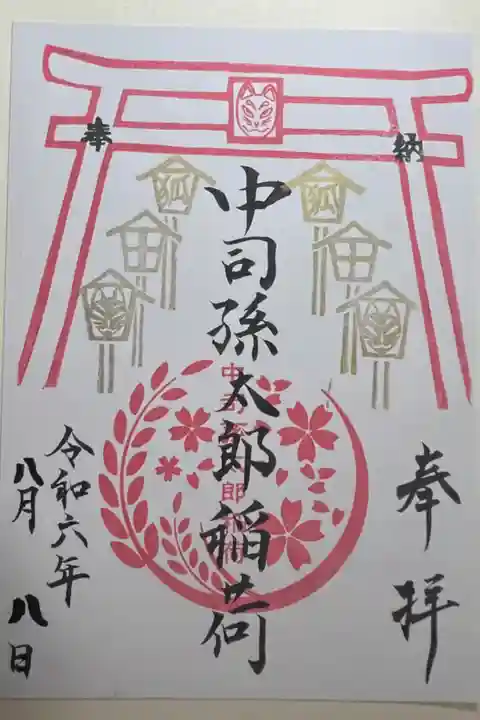 奉 納
狐 狐
田 田
奉拝
中司孫太郎稲荷
中司孫太郎稲荷
令和六年
八月 八日